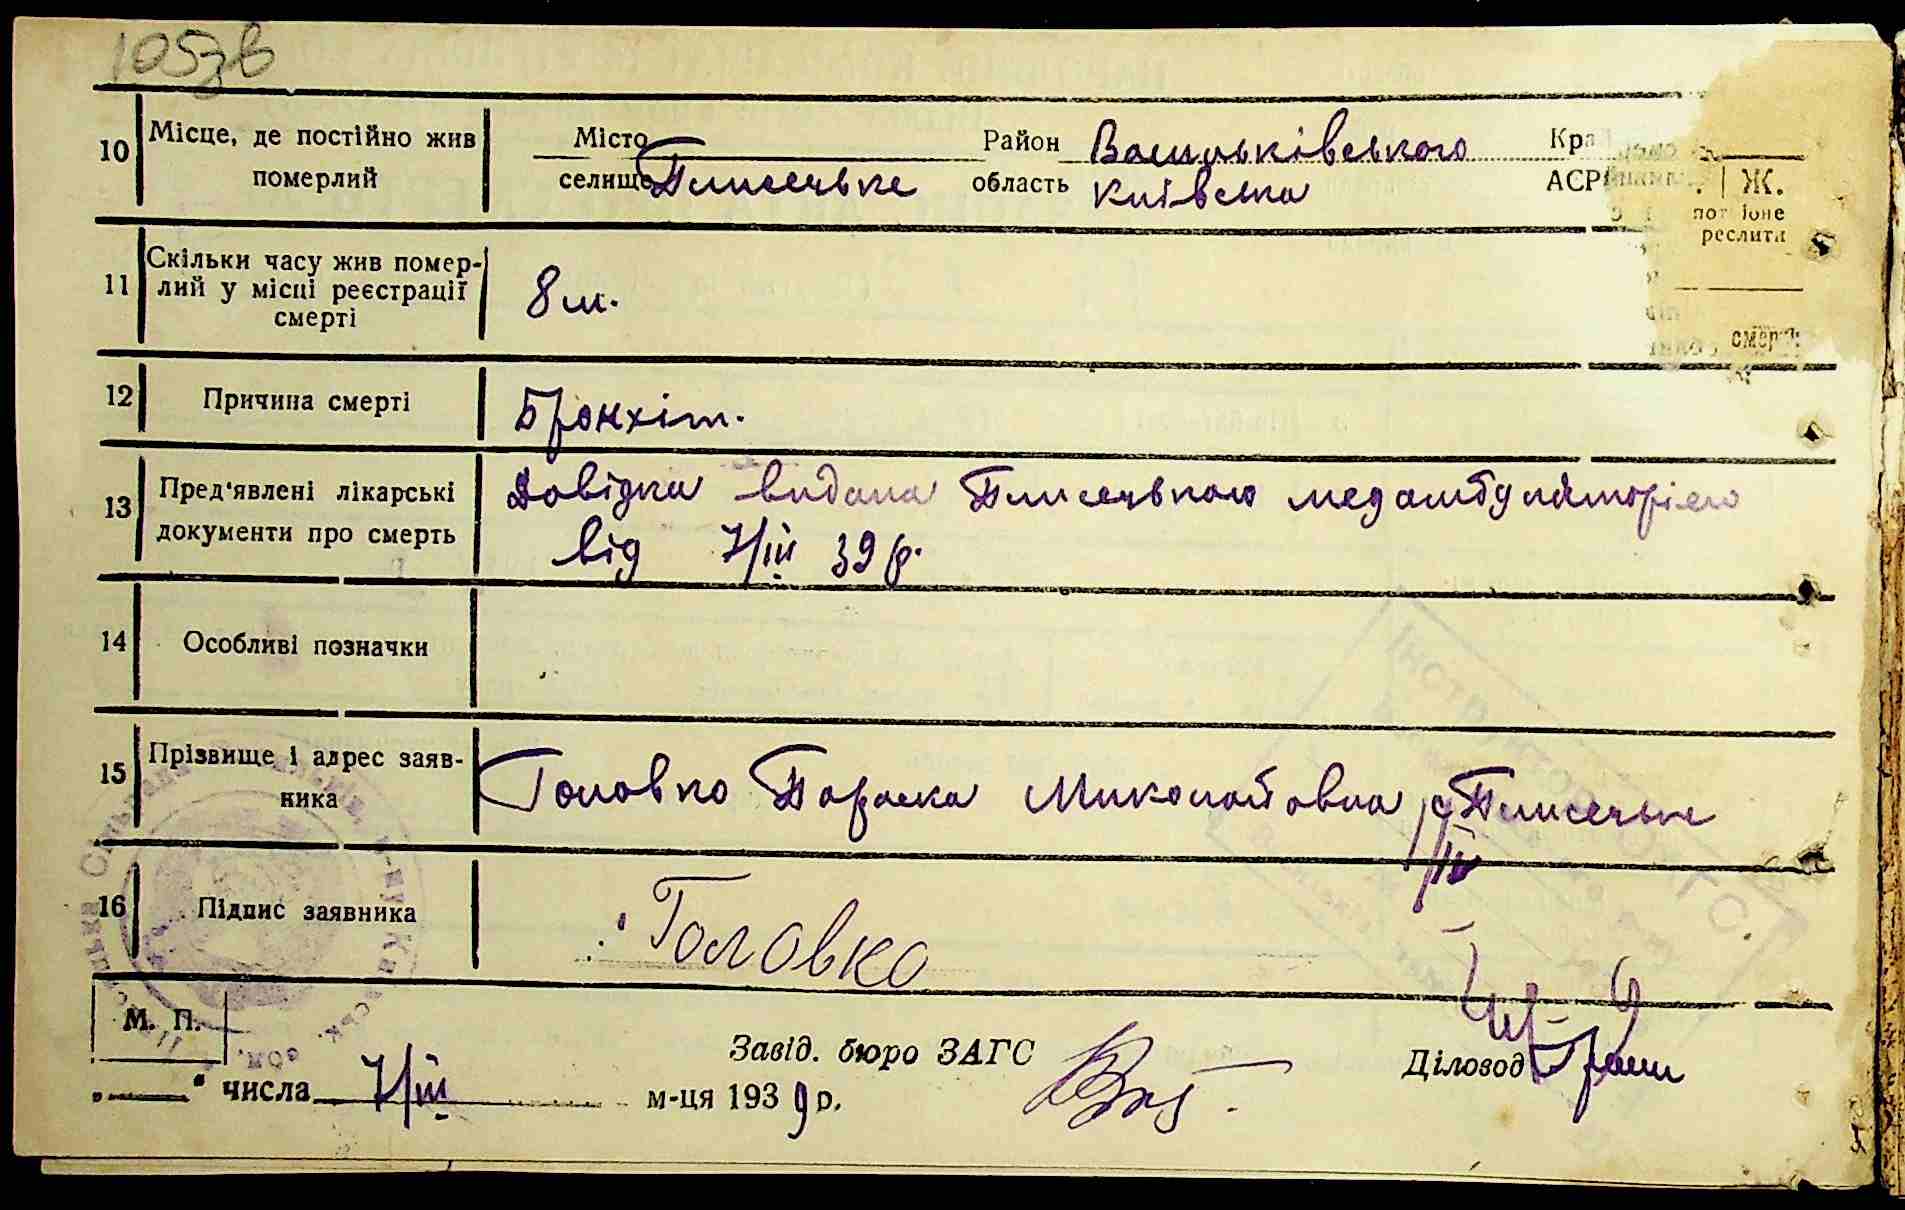 105зв
10 Місце, де постійно жив померлий
Місто Район Васильківського Кра
селище Плисецьке область Київська АСР
Ж.
реслити
11 Скільки часу жив помер-
лий у місці реєстрації
смерті
8 м.
смерт
12 Причина смерті Бронхіт.
13 Пред'явлені лікарські
документи про смерть
Довідка видана Плисецькою медамбуляторією
від 7/III 39 р.
14 Особливі позначки
15 Прізвище і адрес заяв-
ника
Головко Параска Миколаївна с Плисецьке
16 Підпис заявника Головко
М. П.
Завід. бюро ЗАГС
Діловод
" числа 7/III м-ця 1939 р.